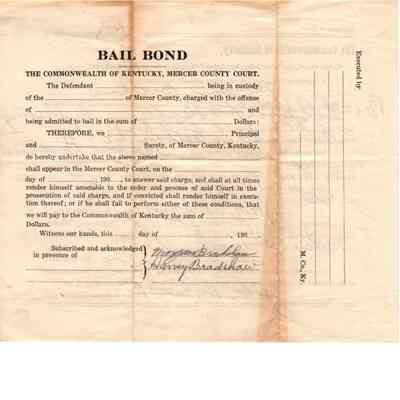 BAIL BOND
THE COMMONWEALTH OF KENTUCKY, MERCER COUNTY COURT.
The Defendant being in custody
of the of Mercer County, charged with the offense
of and
being admitted to bail in the sum of Dollars:
THEREFORE, we Principal
and Surety, of Mercer County, Kentucky,
do hereby undertake that the above named
shall appear in the Mercer County Court, on the
day of 190 , to answer said charge, and shall at all times
render himself amenable to the order and process of said Court in the
prosecution of said charge, and if convicted shall render himself in execu-
tion thereof; or if he shall fail to perform either of these conditions, that
we will pay to the Commonwealth of Kentucky the sum of
Dollars.
Witness our hands, this day of 190
Subscribed and acknowledged
in presence of
Bradshaw
Harvey Bradshaw
Executed by
M. Co., Ky.